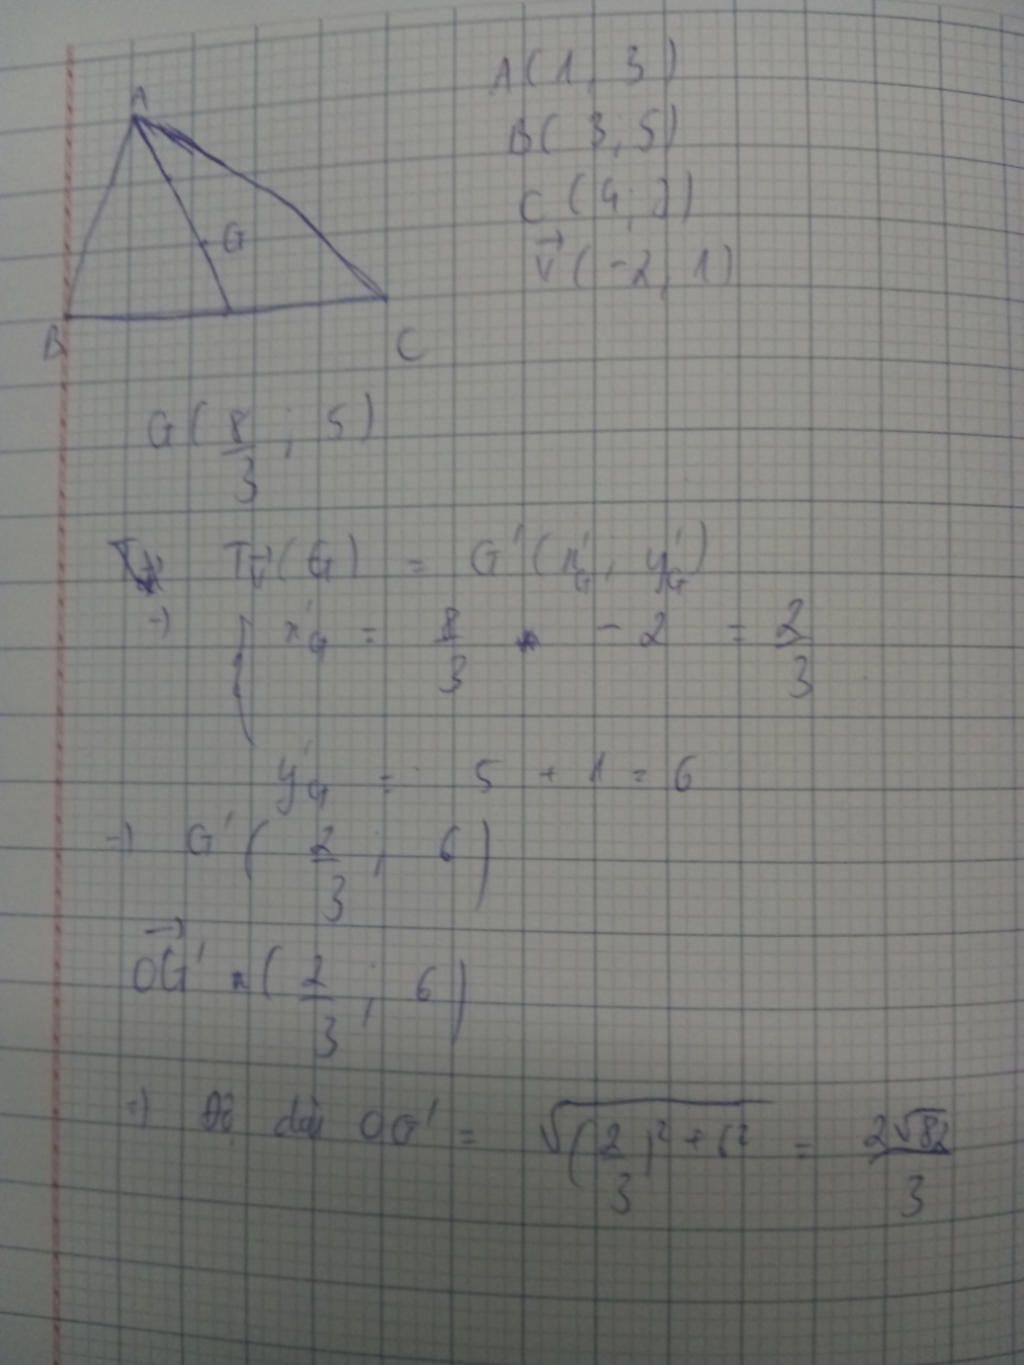 A
A(1, 3)
B(3, 5)
C(4; 7)
v⃗(-2, 1)
G
B
C
G(8/3; 5)
Tv⃗(G) = G'(x'G; y'G)
=> { x'G = 8/3 - 2 = 2/3
y'G = 5 + 1 = 6
=> G'(2/3; 6)
OG'⃗ = (2/3; 6)
=> Độ dài OG' = √((2/3)² + 6²) = 2√82/3